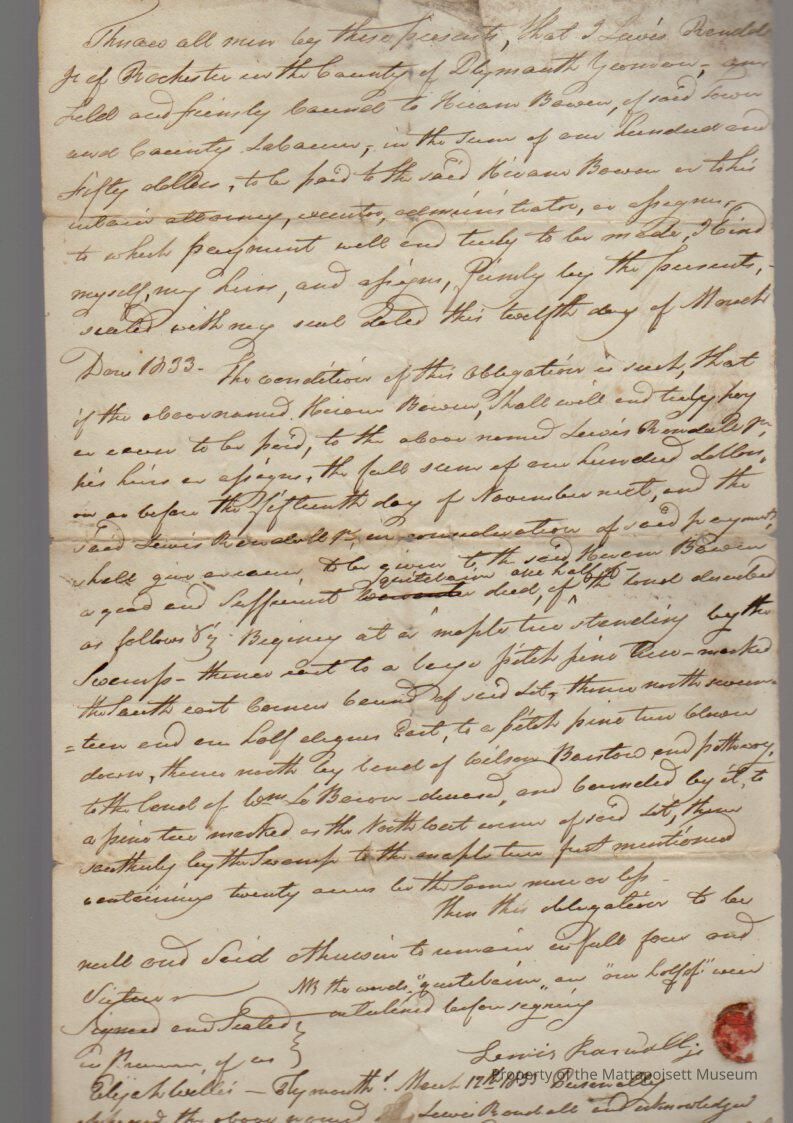 Know all men by these presents, that I Lewis Rendall
Jr of Rochester in the County of Plymouth Yeoman, am
held and firmly bound to Hiram Bowen, of said Town
and County Labourer, in the sum of one hundred and
fifty dollars, to be paid to the said Hiram Bowen or to his
certain attorney, executor, administrator, or assigns,
to which payment well and truly to be made, I bind
myself, my heirs, and assigns, firmly by the presents,
sealed with my seal dated this twelfth day of March
1833. The condition of this obligation is such, that
if the above named Hiram Bowen, shall well and truly pay
or cause to be paid, to the above named Lewis Rendall Jr,
his heirs or assigns, the full sum of one hundred dollars,
on or before the fifteenth day of November next, and the
said Lewis Rendall Jr, in consideration of said payment,
shall give or cause to be given to the said Hiram Bowen
quitclaim one half of
a good and sufficient deed, of the land described
as follows viz. Begining at a maple tree standing by the
Swamp - thence east to a large pitch pine tree - marked
the South east Corner bound of said Lot, thence north seven-
=teen and one half degrees East, to a pitch pine tree blown
down, thence north by land of Wilson Barstow and pathway,
to the land of Wm LeBaron deceased, and bounded by it, to
a pine tree marked as the North west corner of said Lot, thence
southerly by the Swamp to the maple tree first mentioned
containing twenty acres be the same more or less -
Then this obligation to be
null and void otherwise to remain in full force and
Virtue
NB the words "quitclaim" an "one half of" were
interlined before signing
Signed and Sealed
in Presence, of us
Lewis Randall Jr
Elijah Willis - Plymouth Ss March 12th 1833 Personally
appeared the above named Lewis Randall and acknowledged
Property of the Mattapoisett Museum